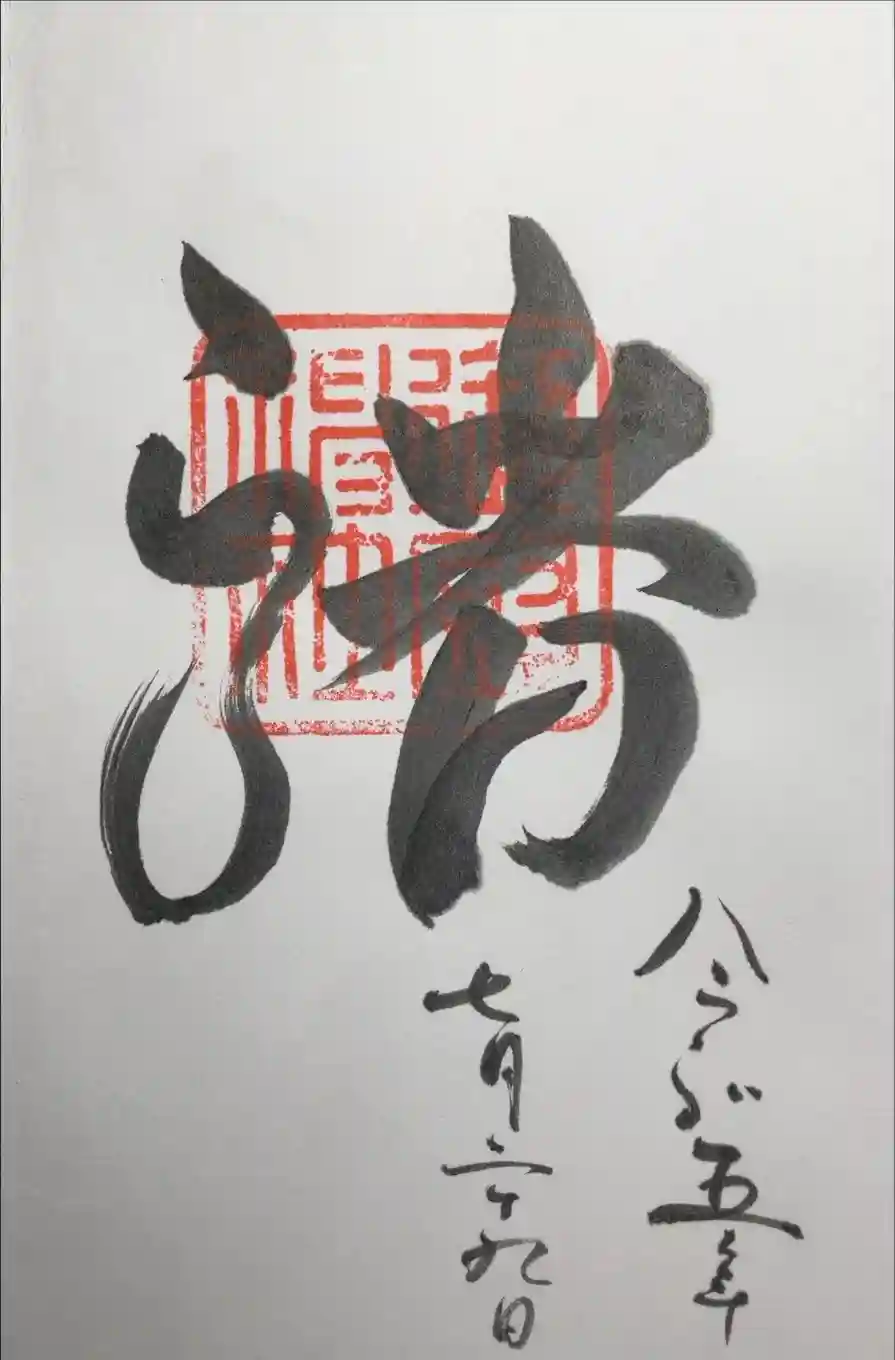 清
令和五年
七月二十九日